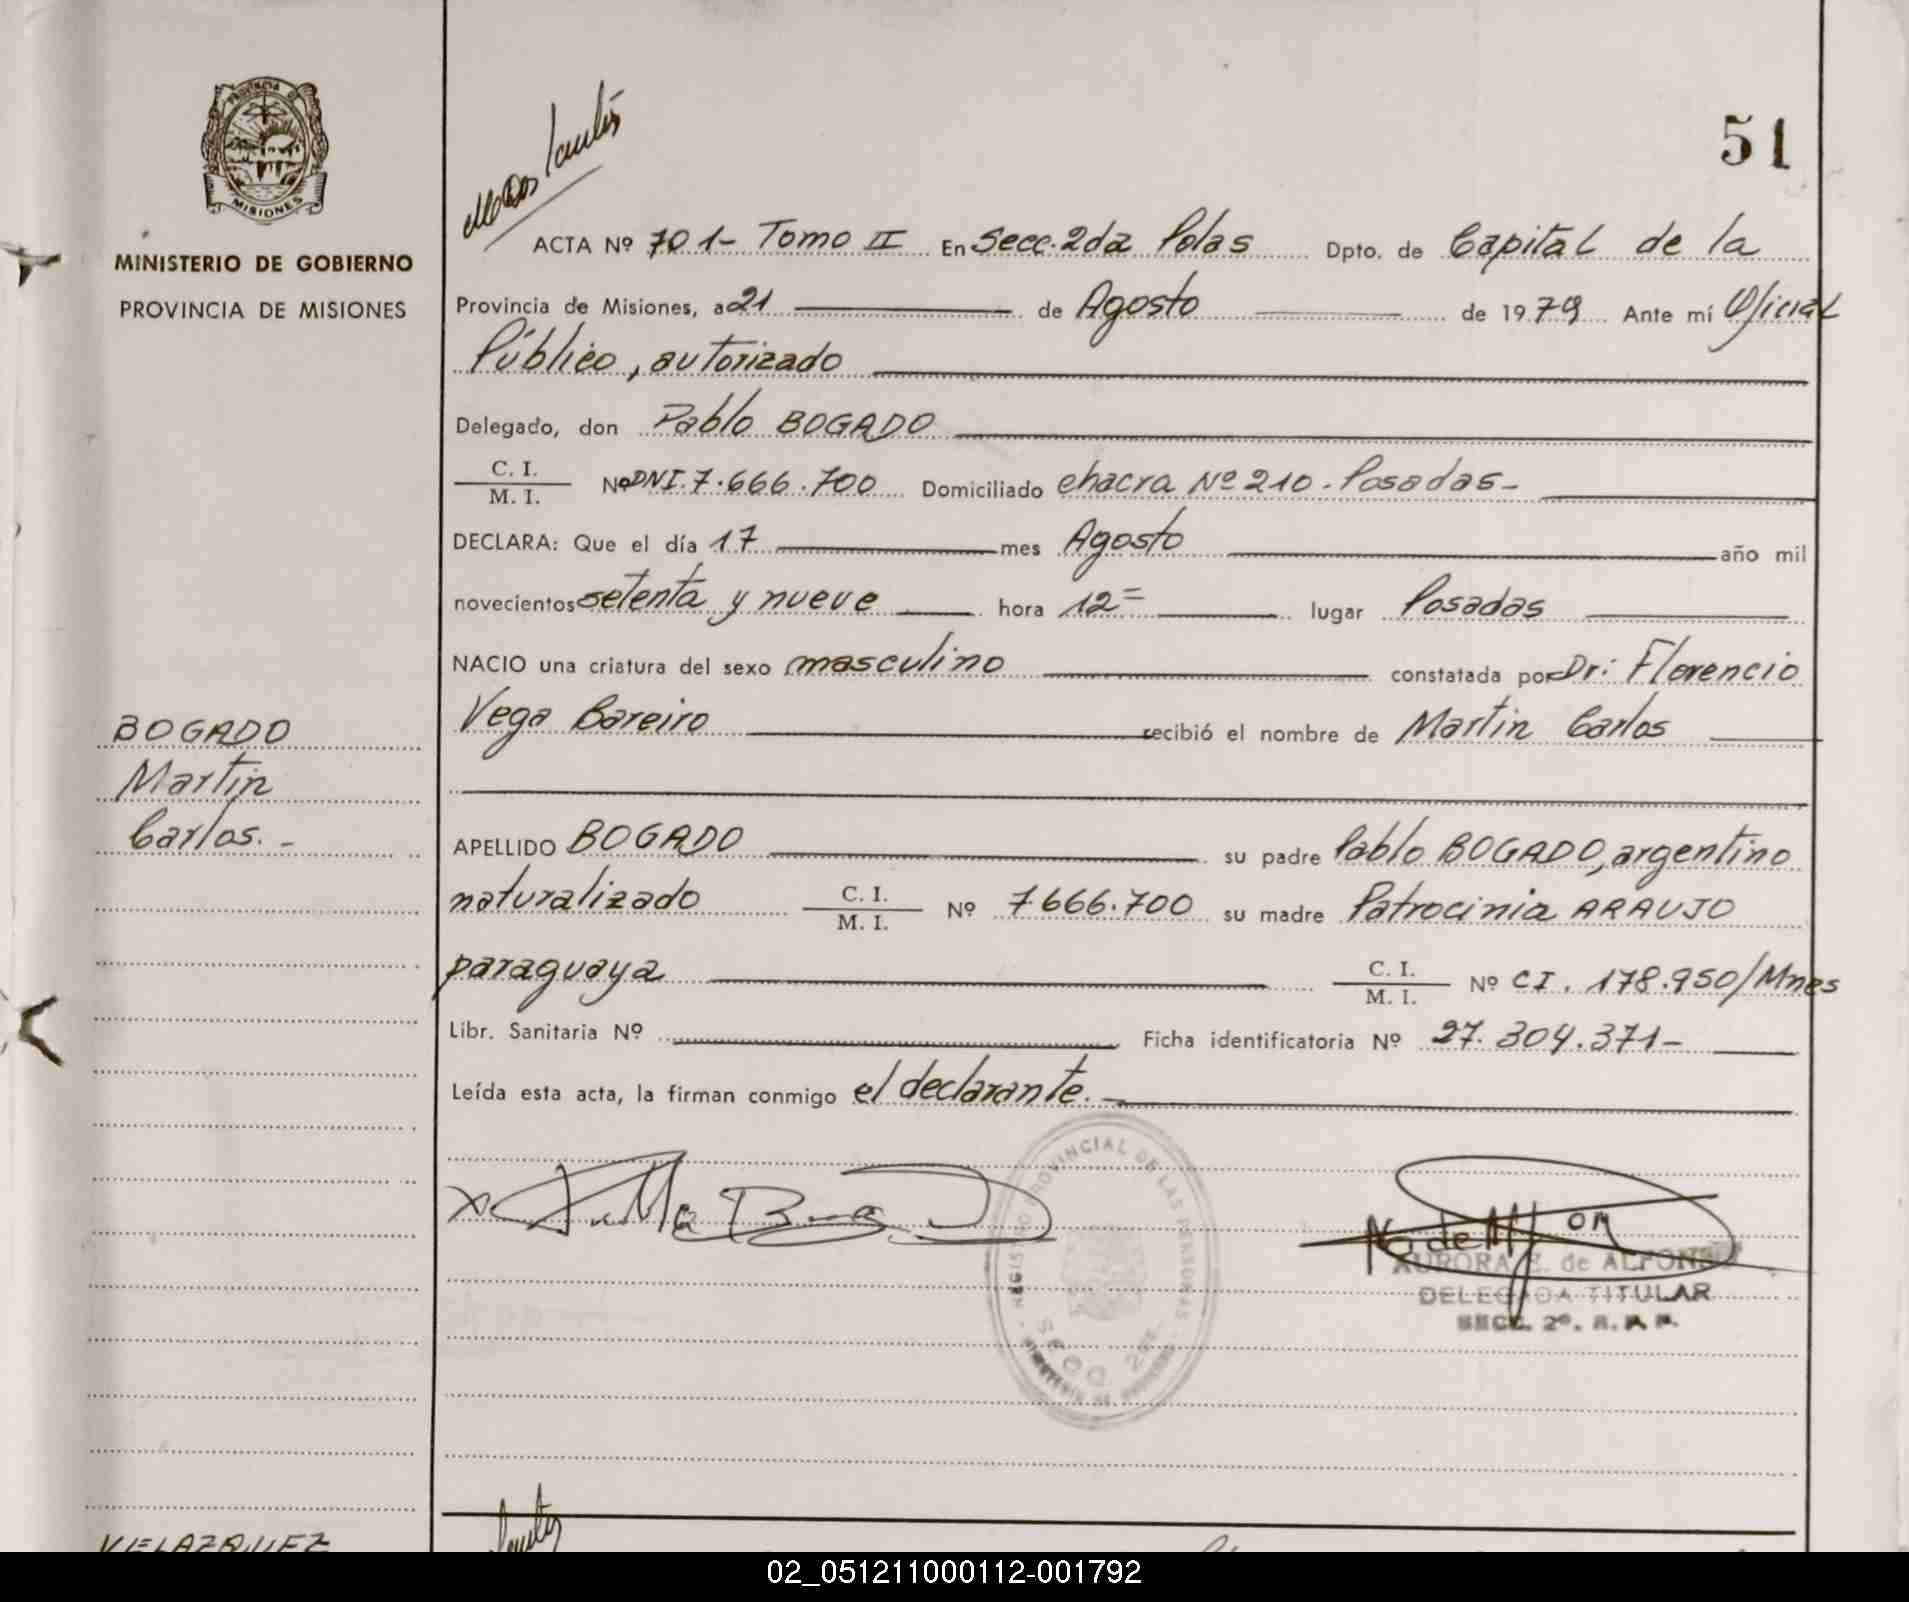 PROVINCIA DE
MISIONES
MINISTERIO DE GOBIERNO
PROVINCIA DE MISIONES
51
ACTA Nº 701- Tomo II En Secc. 2da Pdas Dpto. de Capital de la
Provincia de Misiones, a 21 de Agosto de 1979 Ante mí Oficial
Público, autorizado
Delegado, don Pablo BOGADO
C. I.
M. I. Nº DNI. 7.666.700 Domiciliado chacra Nº 210. Posadas-
DECLARA: Que el día 17 mes Agosto año mil
novecientos setenta y nueve hora 12= lugar Posadas
NACIO una criatura del sexo masculino constatada por Dr: Florencio
Vega Bareiro recibió el nombre de Martin Carlos
BOGADO
Martin
Carlos.-
APELLIDO BOGADO su padre Pablo BOGADO, argentino
naturalizado C. I. M. I. Nº 7.666.700 su madre Patrocinia ARAUJO
paraguaya C. I. M. I. Nº CI. 178.950/Mnes
Libr. Sanitaria Nº Ficha identificatoria Nº 27.304.371-
Leída esta acta, la firman conmigo el declarante.-
REGISTRO PROVINCIAL DE LAS PERSONAS
SECC. 2da
AURORA Z. de ALFONSO
DELEGADA TITULAR
SECC. 2ª. R. P. P.
VELAZQUEZ
02_051211000112-001792